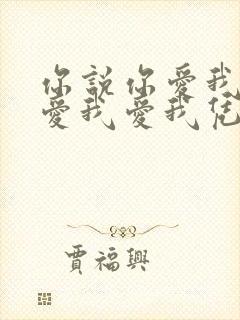 你說你愛我
愛我愛我凭
賈福興